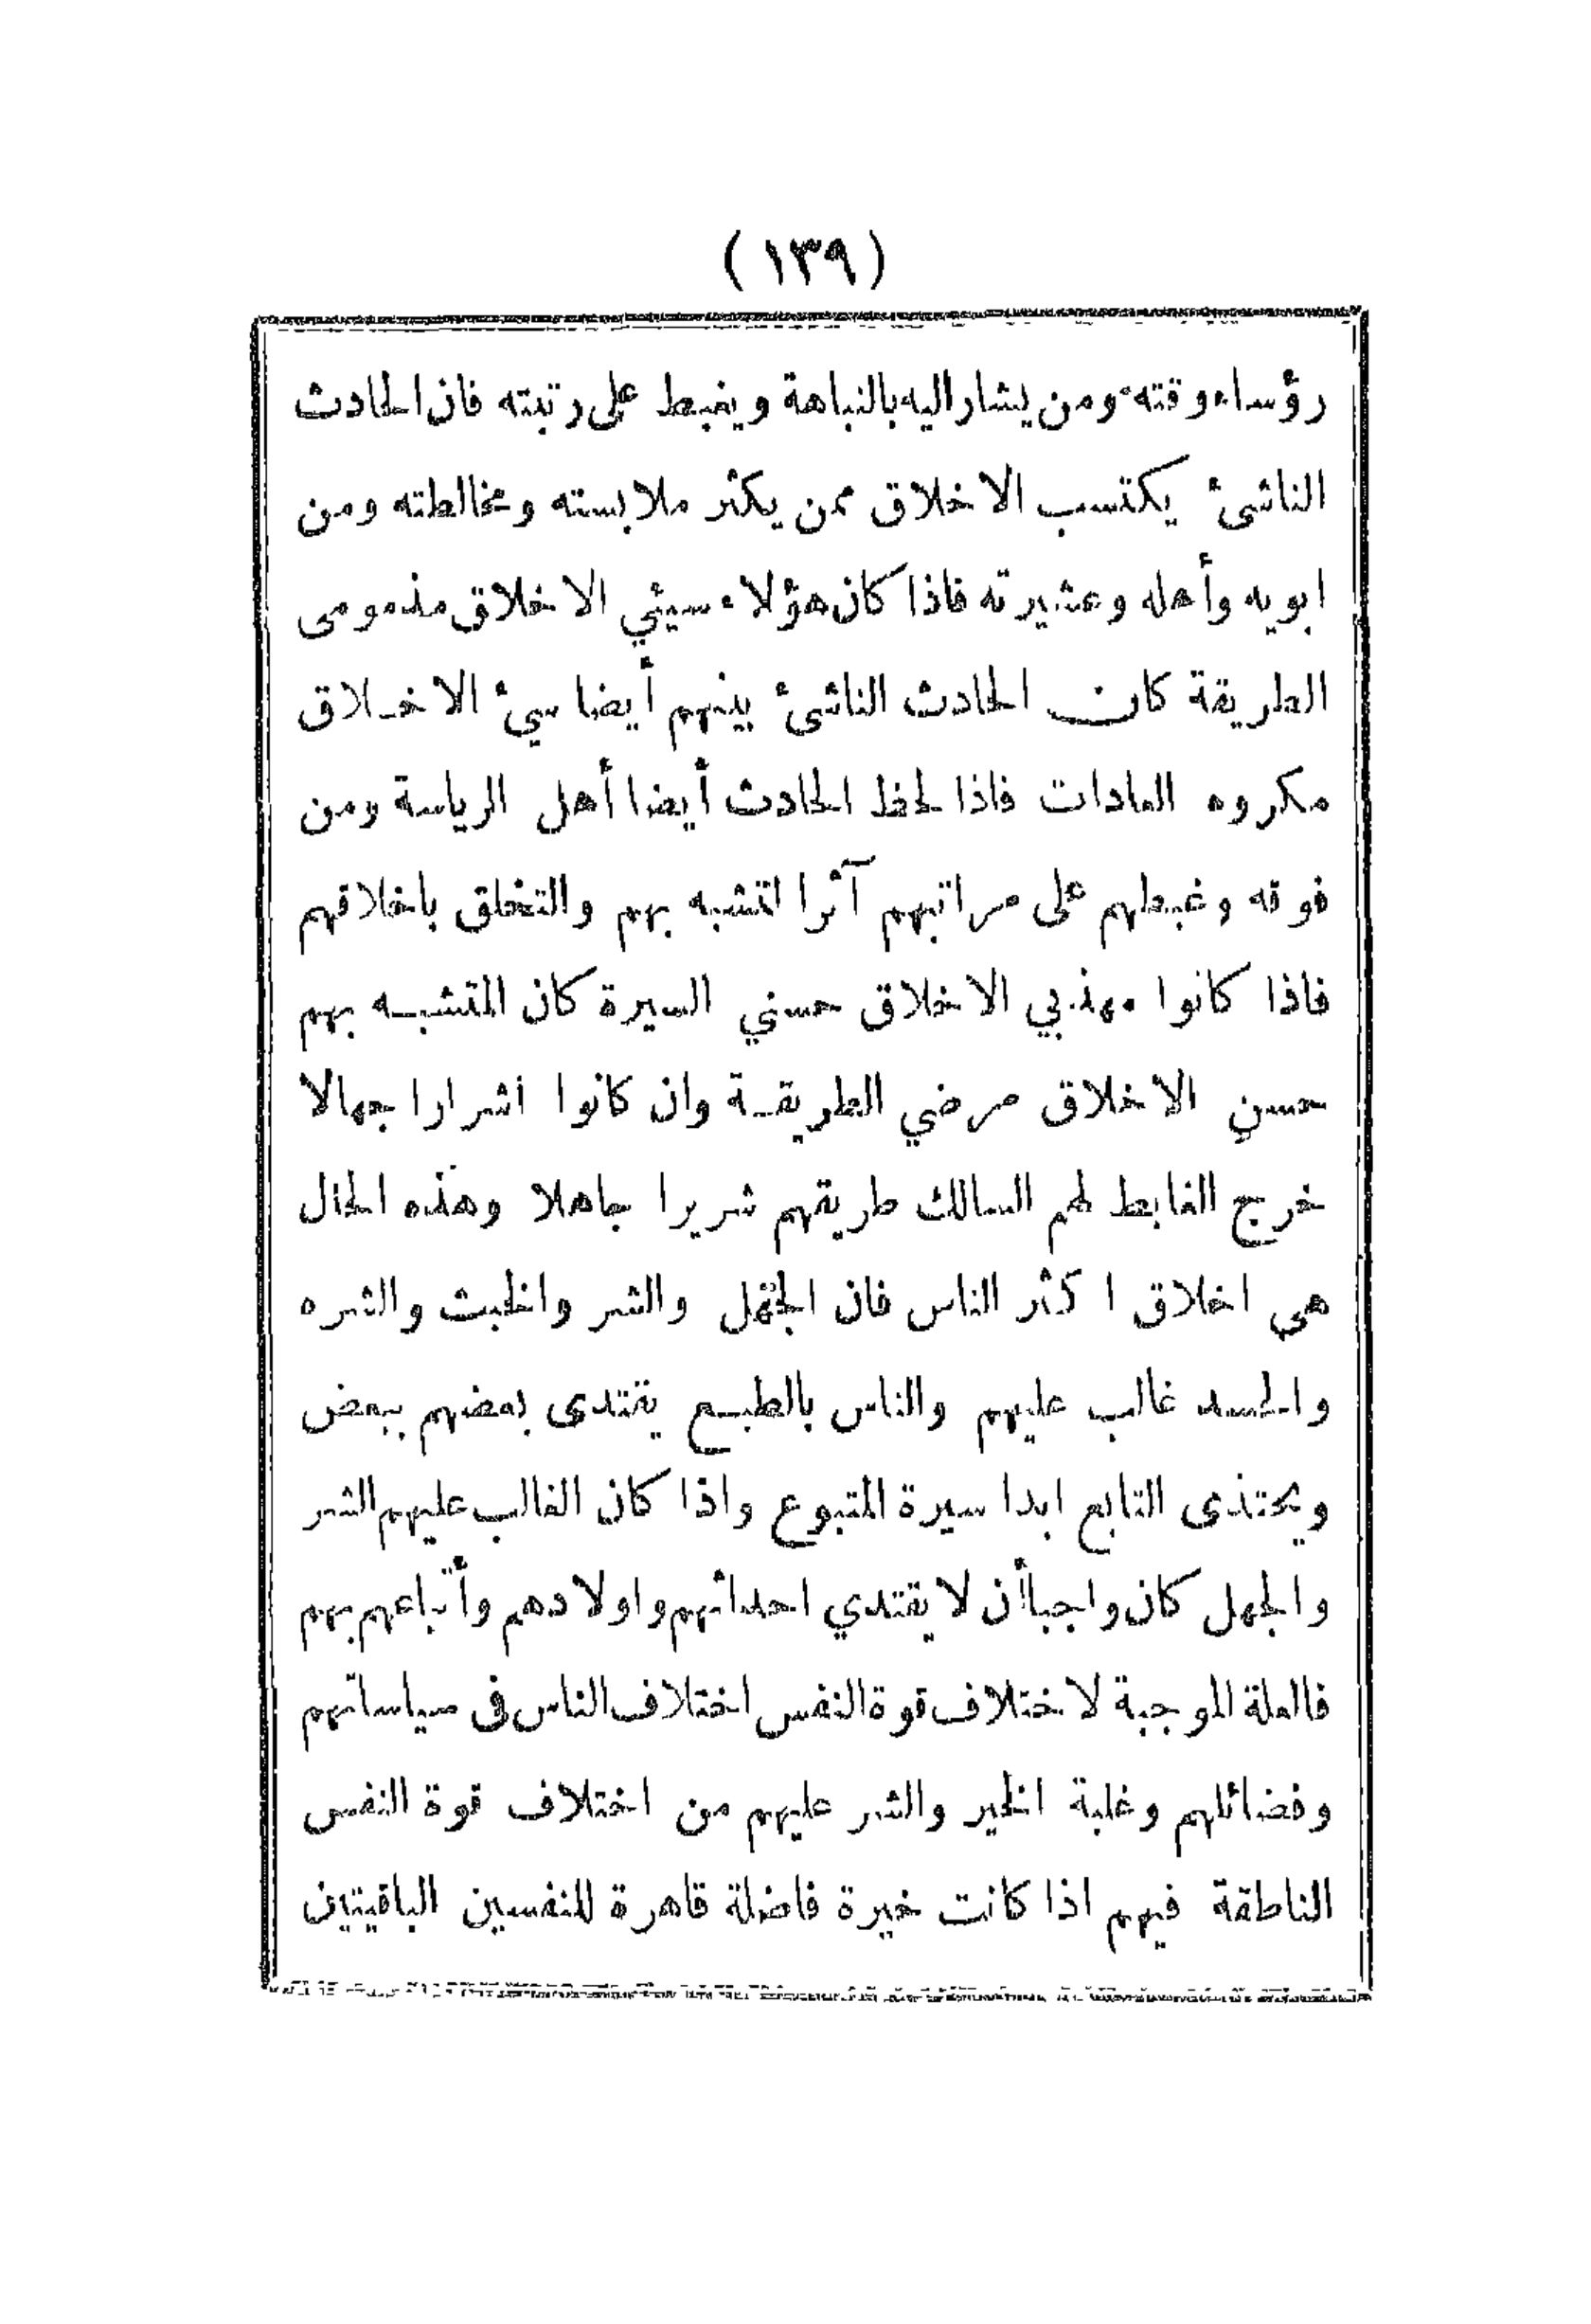 ( ١٣٩ )
رؤساء وقته ومن يشار اليه بالنباهة ويغبط على رتبته فان الحادث
الناشئ يكتسب الاخلاق ممن يكثر ملابسته ومخالطته ومن
ابويه وأهله وعشيرته فاذا كان هؤلاء سيئي الاخلاق مذمومى
الطريقة كان الحادث الناشئ بينهم أيضا سيئ الاخلاق
مكروه العادات فاذا لحظ الحادث أيضا أهل الرياسة ومن
فوقه وغبطهم على مراتبهم آثر التشبه بهم والتخلق باخلاقهم
فاذا كانوا مهذبي الاخلاق حسني السيرة كان المتشبه بهم
حسن الاخلاق مرضي الطريقة وان كانوا اشرارا جهالا
خرج الغابط لهم السالك طريقهم شريرا جاهلا وهذه الحال
هي اخلاق اكثر الناس فان الجهل والشر والخبث والشره
والحسد غالب عليهم والناس بالطبع يقتدى بعضهم ببعض
ويحتذى التابع ابدا سيرة المتبوع واذا كان الغالب عليهم الشر
والجهل كان واجبا أن لا يقتدي احداثهم واولادهم وأتباعهم بهم
فالعلة الموجبة لاختلاف قوة النفس اختلاف الناس فى سياساتهم
وفضائلهم وغلبة الخير والشر عليهم من اختلاف قوة النفس
الناطقة فيهم اذا كانت خيرة فاضلة قاهرة للنفسين الباقيتين